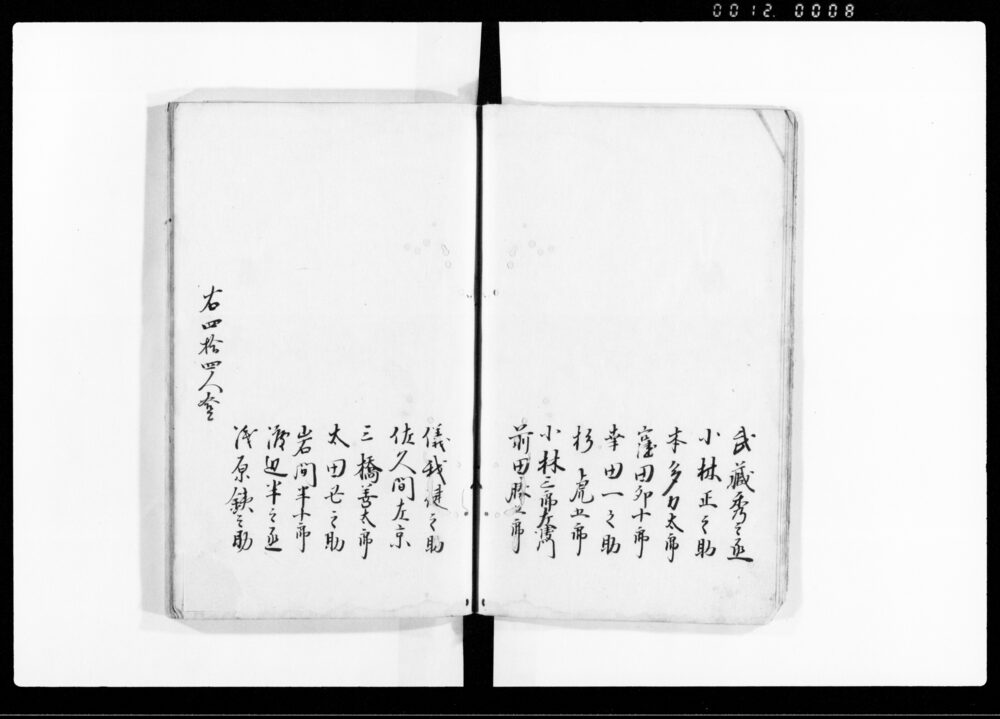 0012. 0008
武蔵秀之丞
小林正之助
本多力太郎
窪田卯十郎
幸田一之助
杉虎五郎
小林三郎左衛門
前田勝五郎
儀我健之助
佐久間左京
三橋善太郎
太田芒之助
岩間半十郎
渡辺半之丞
浅原銕之助
右四拾四人